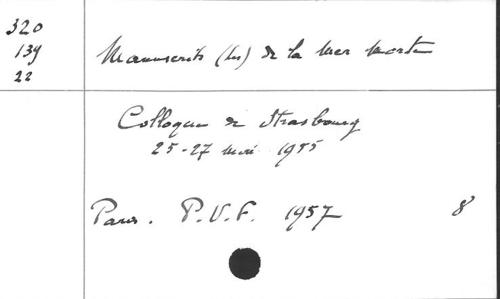 320
139
22
Manuscrits (les) de la Mer Morte
Colloque de Strasbourg
25-27 mai 1955
Paris. P.U.F. 1957 8